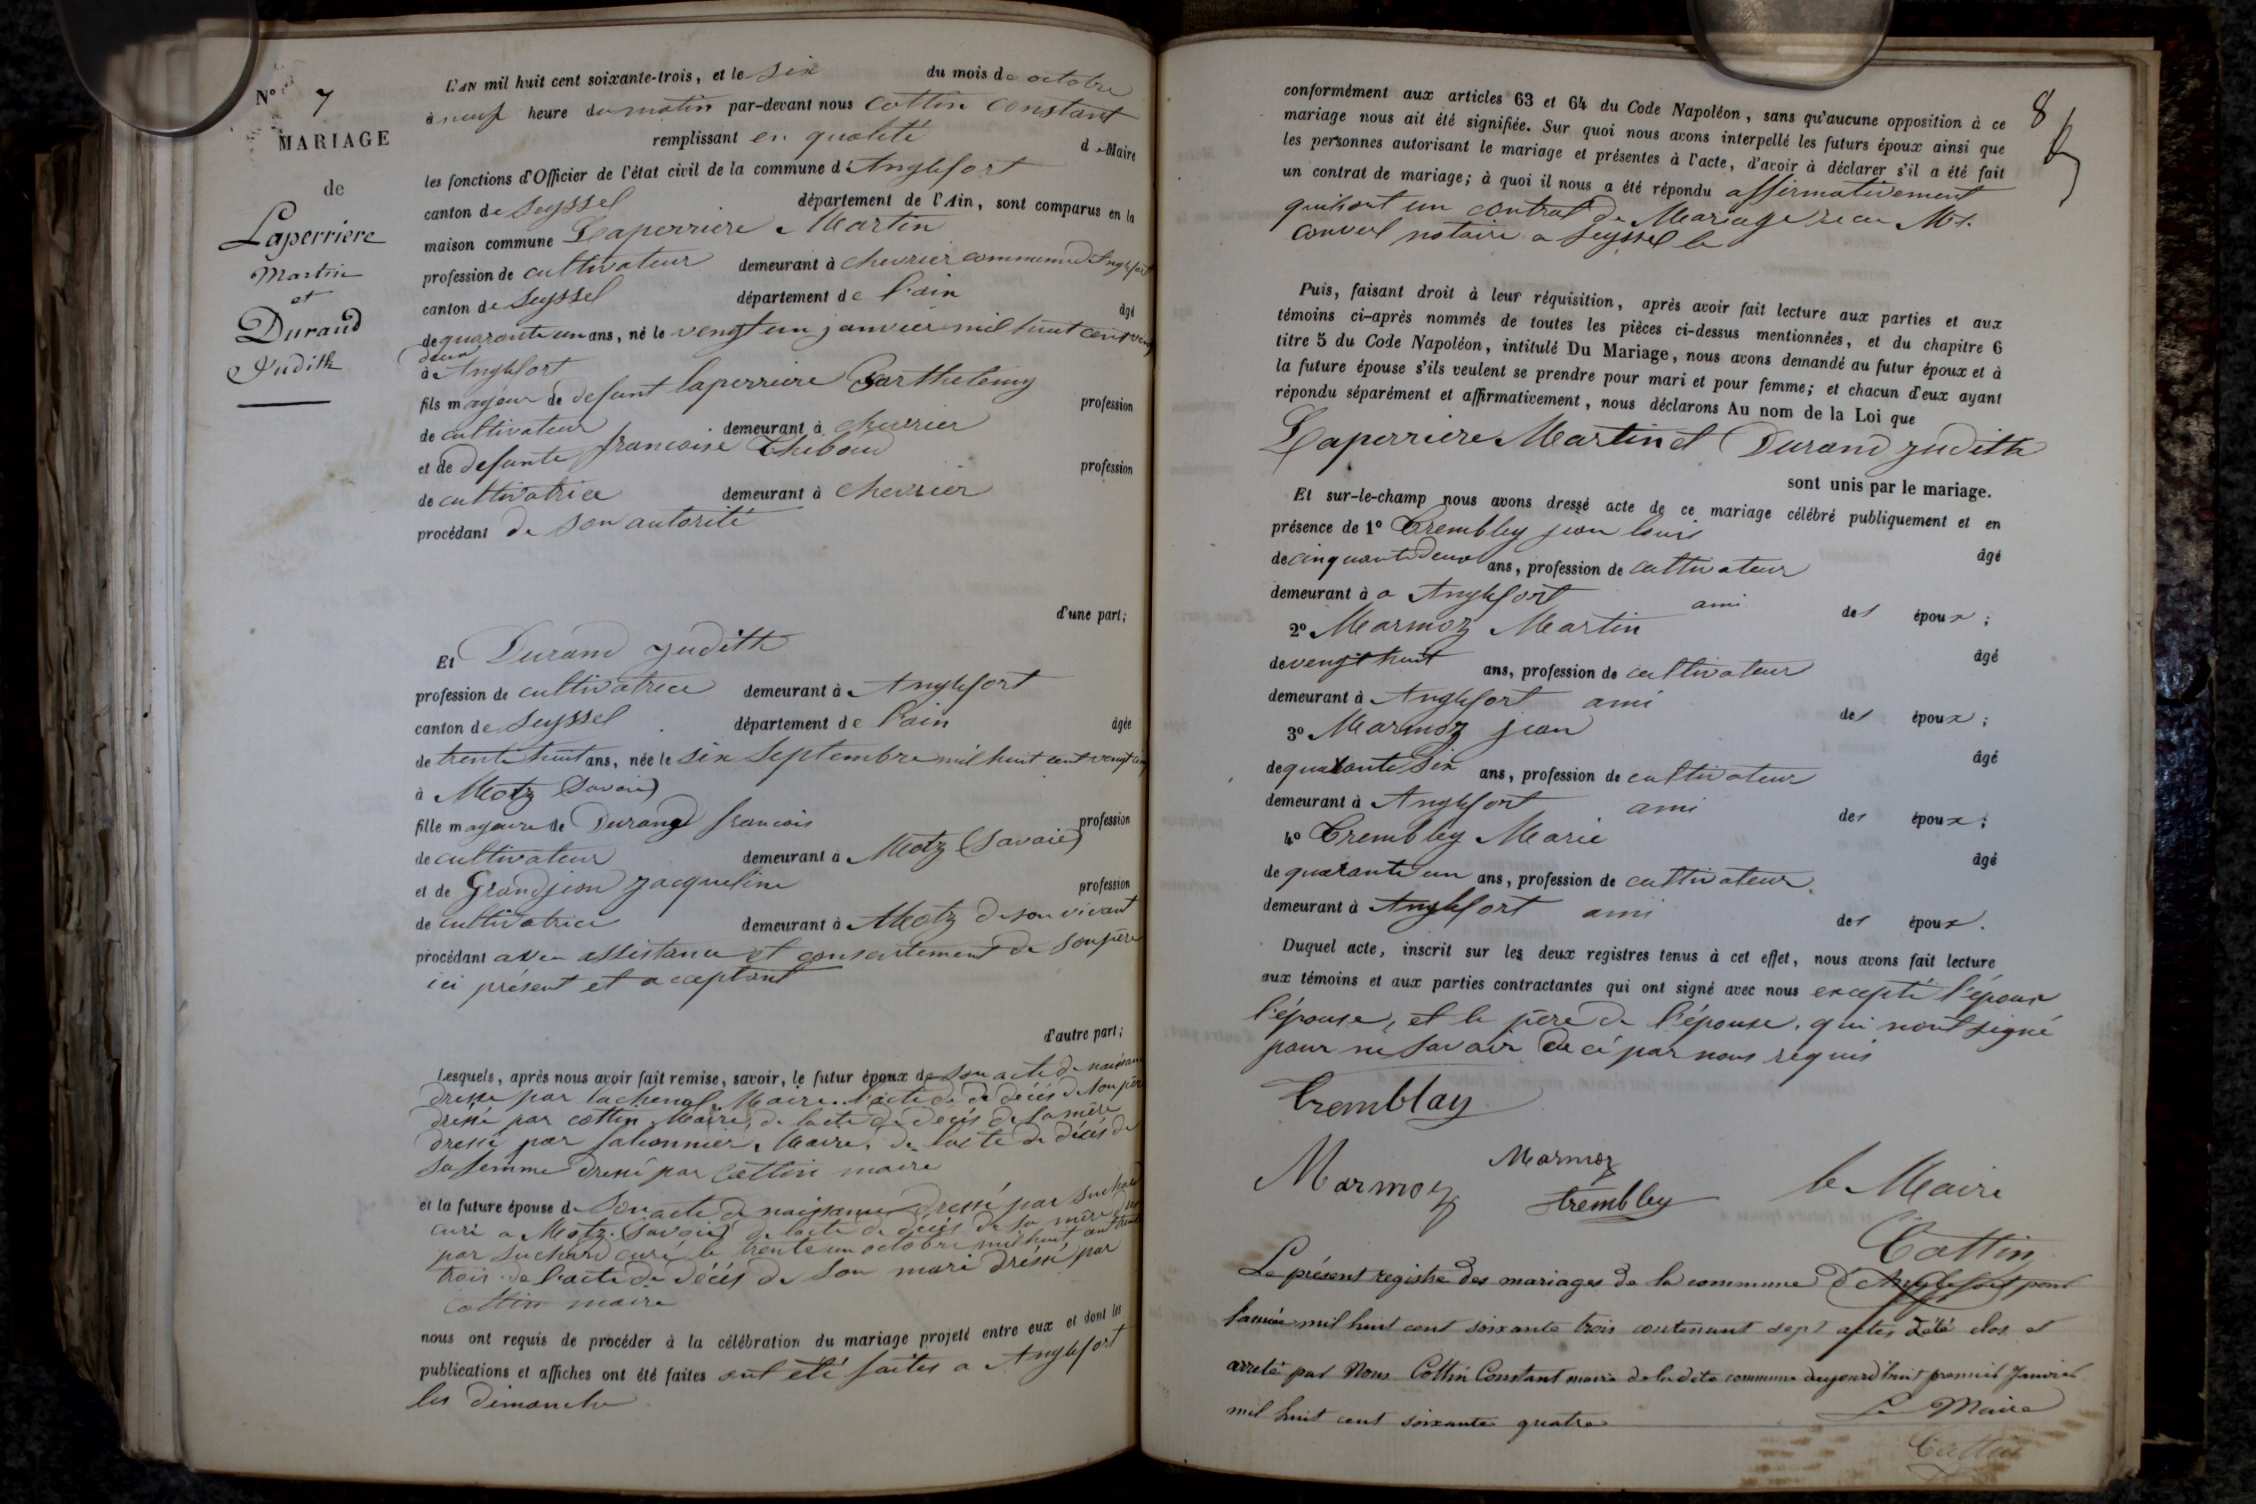 N° 7
MARIAGE
de
Laperriere
Martin
et
Durand
Judith
L'AN mil huit cent soixante-trois, et le six du mois de octobre
à neuf heure du matin par-devant nous Cottin Constant
remplissant en qualité de Maire
les fonctions d'Officier de l'état civil de la commune d'Anglefort
canton de Seyssel département de l'Ain, sont comparus en la
maison commune Laperriere Martin
profession de cultivateur demeurant à chevrier commune d'Anglefort
canton de Seyssel département de l'ain âgé
de quarante un ans, né le vengt un janvier mil huit cent vengt
deux
à Anglefort
fils majeur de defunt laperriere Barthelemy profession
de cultivateur demeurant à chevrier
et de defunte francoise Thiboud profession
de cultivatrice demeurant à chevrier
procédant de son autorité
d'une part;
Et Durand Judith
profession de cultivatrice demeurant à Anglefort
canton de Seyssel département de l'ain âgée
de trente huit ans, née le six Septembre mil huit cent vengt cinq
à Motz (Savoie)
fille mageure de Durand francois profession
de cultivateur demeurant à Motz (Savoie)
et de Grandjean Jacqueline profession
de cultivatrice demeurant à Motz de son vivant
procédant avec assistance et consentement de son père
ici présent et acceptant
d'autre part;
Lesquels, après nous avoir fait remise, savoir, le futur époux de son acte de naissance
dressé par lachenal Maire. l'acte de décés de son père
dressé par cottin Maire, de lacte de décés de sa mère
dressé par Maire, de lacte de décés de
sa femme dressé par Cottin maire
et la future épouse de Son acte de naissance dressé par Suchard
curé a Motz (Savoie) de lacte de décés de sa mère
par Suchard curé le trente un octobre mil huit cent trente
trois de l'acte de décés de son mari dréssé par
Cottin maire
nous ont requis de procéder à la célébration du mariage projeté entre eux et dont les
publications et affiches ont été faites ont été faites a Anglefort
les dimanche
8
conformément aux articles 63 et 64 du Code Napoléon, sans qu'aucune opposition à ce
mariage nous ait été signifiée. Sur quoi nous avons interpellé les futurs époux ainsi que
les personnes autorisant le mariage et présentes à l'acte, d'avoir à déclarer s'il a été fait
un contrat de mariage; à quoi il nous a été répondu affirmativement
quil sont un contrat de Mariage recu Mt.
notaire a Seyssel le
Puis, faisant droit à leur réquisition, après avoir fait lecture aux parties et aux
témoins ci-après nommés de toutes les pièces ci-dessus mentionnées, et du chapitre 6
titre 5 du Code Napoléon, intitulé Du Mariage, nous avons demandé au futur époux et à
la future épouse s'ils veulent se prendre pour mari et pour femme; et chacun d'eux ayant
répondu séparément et affirmativement, nous déclarons Au nom de la Loi que
Laperriere Martin et Durand Judith
sont unis par le mariage.
Et sur-le-champ nous avons dressé acte de ce mariage célébré publiquement et en
présence de 1° Trembley jean louis âgé
de cinquante deux ans, profession de cultivateur
demeurant à a Anglefort ami des époux;
2° Marmoz Martin âgé
de vengt huit ans, profession de cultivateur
demeurant à Anglefort ami des époux;
3° Marmoz jean âgé
de quarante six ans, profession de cultivateur
demeurant à Anglefort ami des époux;
4° Trembley Marie âgé
de quarante un ans, profession de cultivateur
demeurant à Anglefort ami des époux.
Duquel acte, inscrit sur les deux registres tenus à cet effet, nous avons fait lecture
aux témoins et aux parties contractantes qui ont signé avec nous excepté l'époux
l'épouse, et le père de l'épouse, qui nont signé
pour ne savoir de ce par nous requis
Tremblay
Marmoz Marmoz le Maire
trembley
Cottin
Le présent registre des mariages de la commune d'Anglefort pour
l'année mil huit cent soixante trois contenant sept actes a été clos et
arreté par Nous Cottin Constant maire de la dite commune aujourd'huit premier Janvier
mil huit cent soixante quatre Le Maire
Cottin